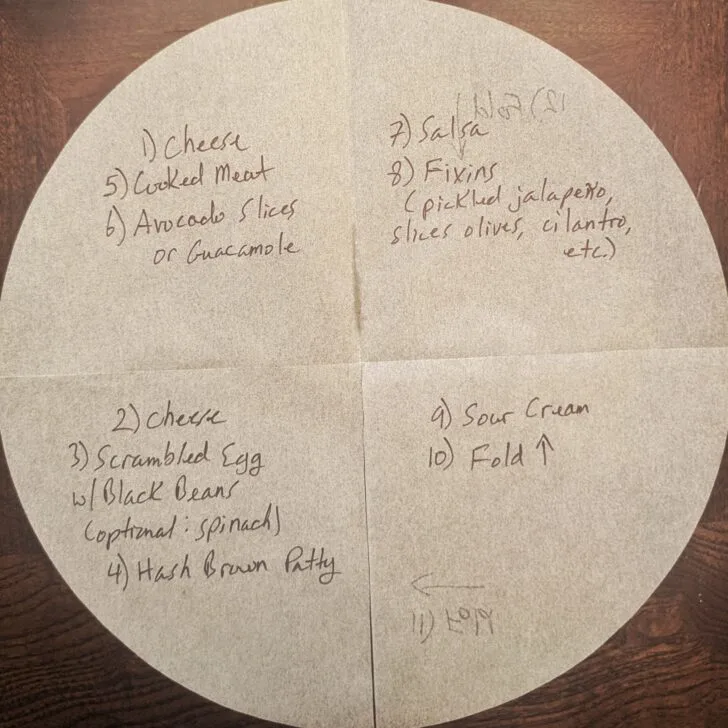 1) Cheese
5) Cooked Meat
6) Avocado Slices
or Guacamole
12) Fold ↓
7) Salsa
8) Fixins
(pickled jalapeño,
slices olives, cilantro,
etc.)
2) Cheese
3) Scrambled Egg
w/ Black Beans
(optional: spinach)
4) Hash Brown Patty
9) Sour Cream
10) Fold ↑
←
11) Fold